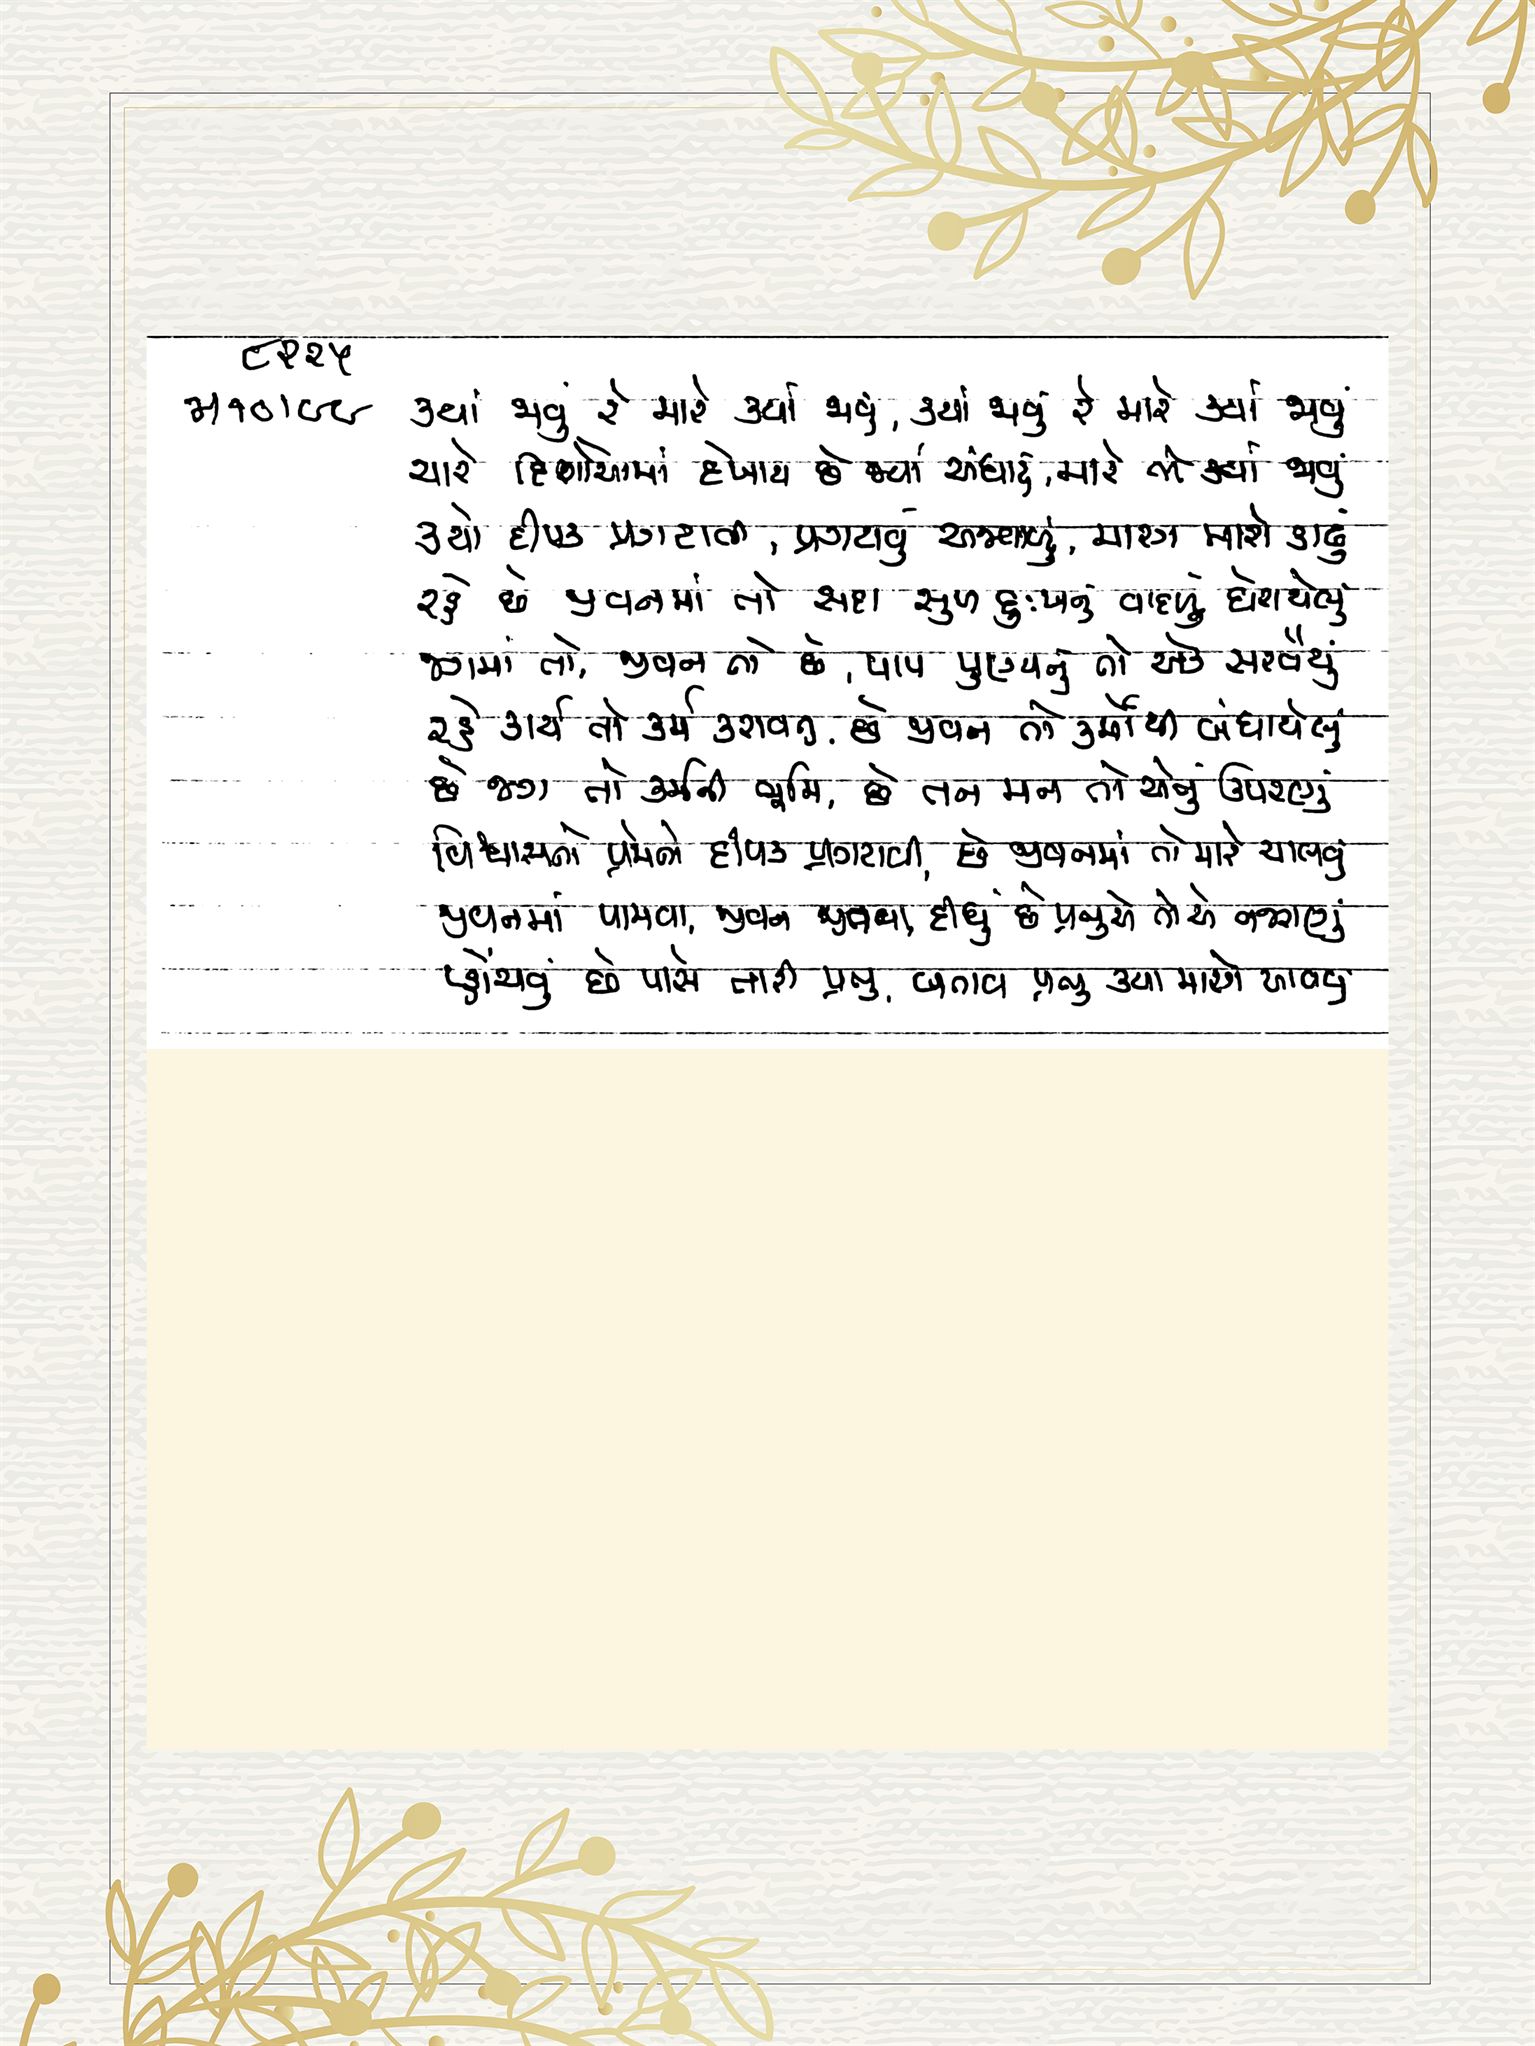 ૮૨૨૫
ક્યાં જવું રે મારે ક્યાં જવું, ક્યાં જવું રે મારે ક્યાં જવું
ચારે દિશાઓમાં દેખાય છે જ્યાં અંધારું, મારે તો ક્યાં જવું
કયો દીપક પ્રગટાવી, પ્રગટાવું અજવાળું, મારગ મારો કાઢું
રહે છે જીવનમાં તો સદા સુખ દુઃખનું વાદળું ઘેરાયેલું
જગમાં તો, જીવન તો છે, પાપ પુણ્યનું તો એક સરવૈયું
રહે કાર્ય તો કર્મ કરાવતું, છે જીવન તો કર્મોથી બંધાયેલું
છે જગ તો કર્મની ભૂમિ, છે તન મન તો એનું ઉપરણું
વિશ્વાસનો પ્રેમનો દીપક પ્રગટાવી, છે જીવનમાં તો મારે ચાલવું
જીવનમાં પામવા, જીવન જીવવા, દીધું છે પ્રભુએ તો એ નજરાણું
પ્હોંચવું છે પાસે તારી પ્રભુ, બતાવ પ્રભુ ક્યા માર્ગે આવવું